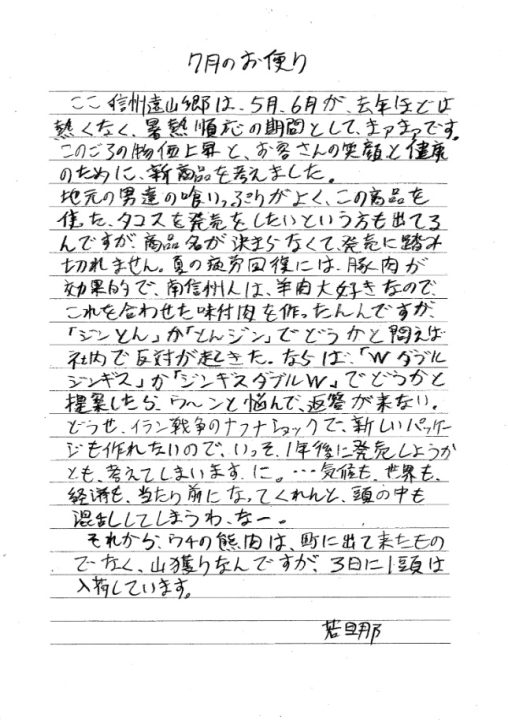 7月のお便り
ここ信州遠山郷は、5月、6月が、去年ほどは
熱くなく、暑熱順応の期間として、まアまアです。
このごろの物価上昇と、お客さんの笑顔と健康
のために、新商品を考えました。
地元の男達の喰いっぷりがよく、この商品を
使った、タコスを発売をしたいという方も出てる
んですが、商品名が決まらなくて、発売に踏み
切れません。夏の疲労回復には、豚肉が
効果的で、南信州人は、羊肉大好きなので、
これを合わせた味付肉を作ったんんですが、
「ジンとん」か「とんジン」でどうかと問えば
社内で反対が起きた。ならば、「W ダブル
ジンギス」か「ジンギスダブルW」でどうかと
提案したら、ウ〜ンと悩んで、返答が来ない。
どうせ、イラン戦争のナフサショックで、新しいパッケー
ジも作れないので、いっそ、1年後に発売しようか
とも、考えてしまいます、に。…気候も、世界も、
経済も、当たり前になってくれんと、頭の中も
混乱ししてしまうわ、なー。
それから、ウチの熊肉は、町に出て来たもの
でなく、山獲りなんですが、3日に1頭は
入荷しています。
若旦那